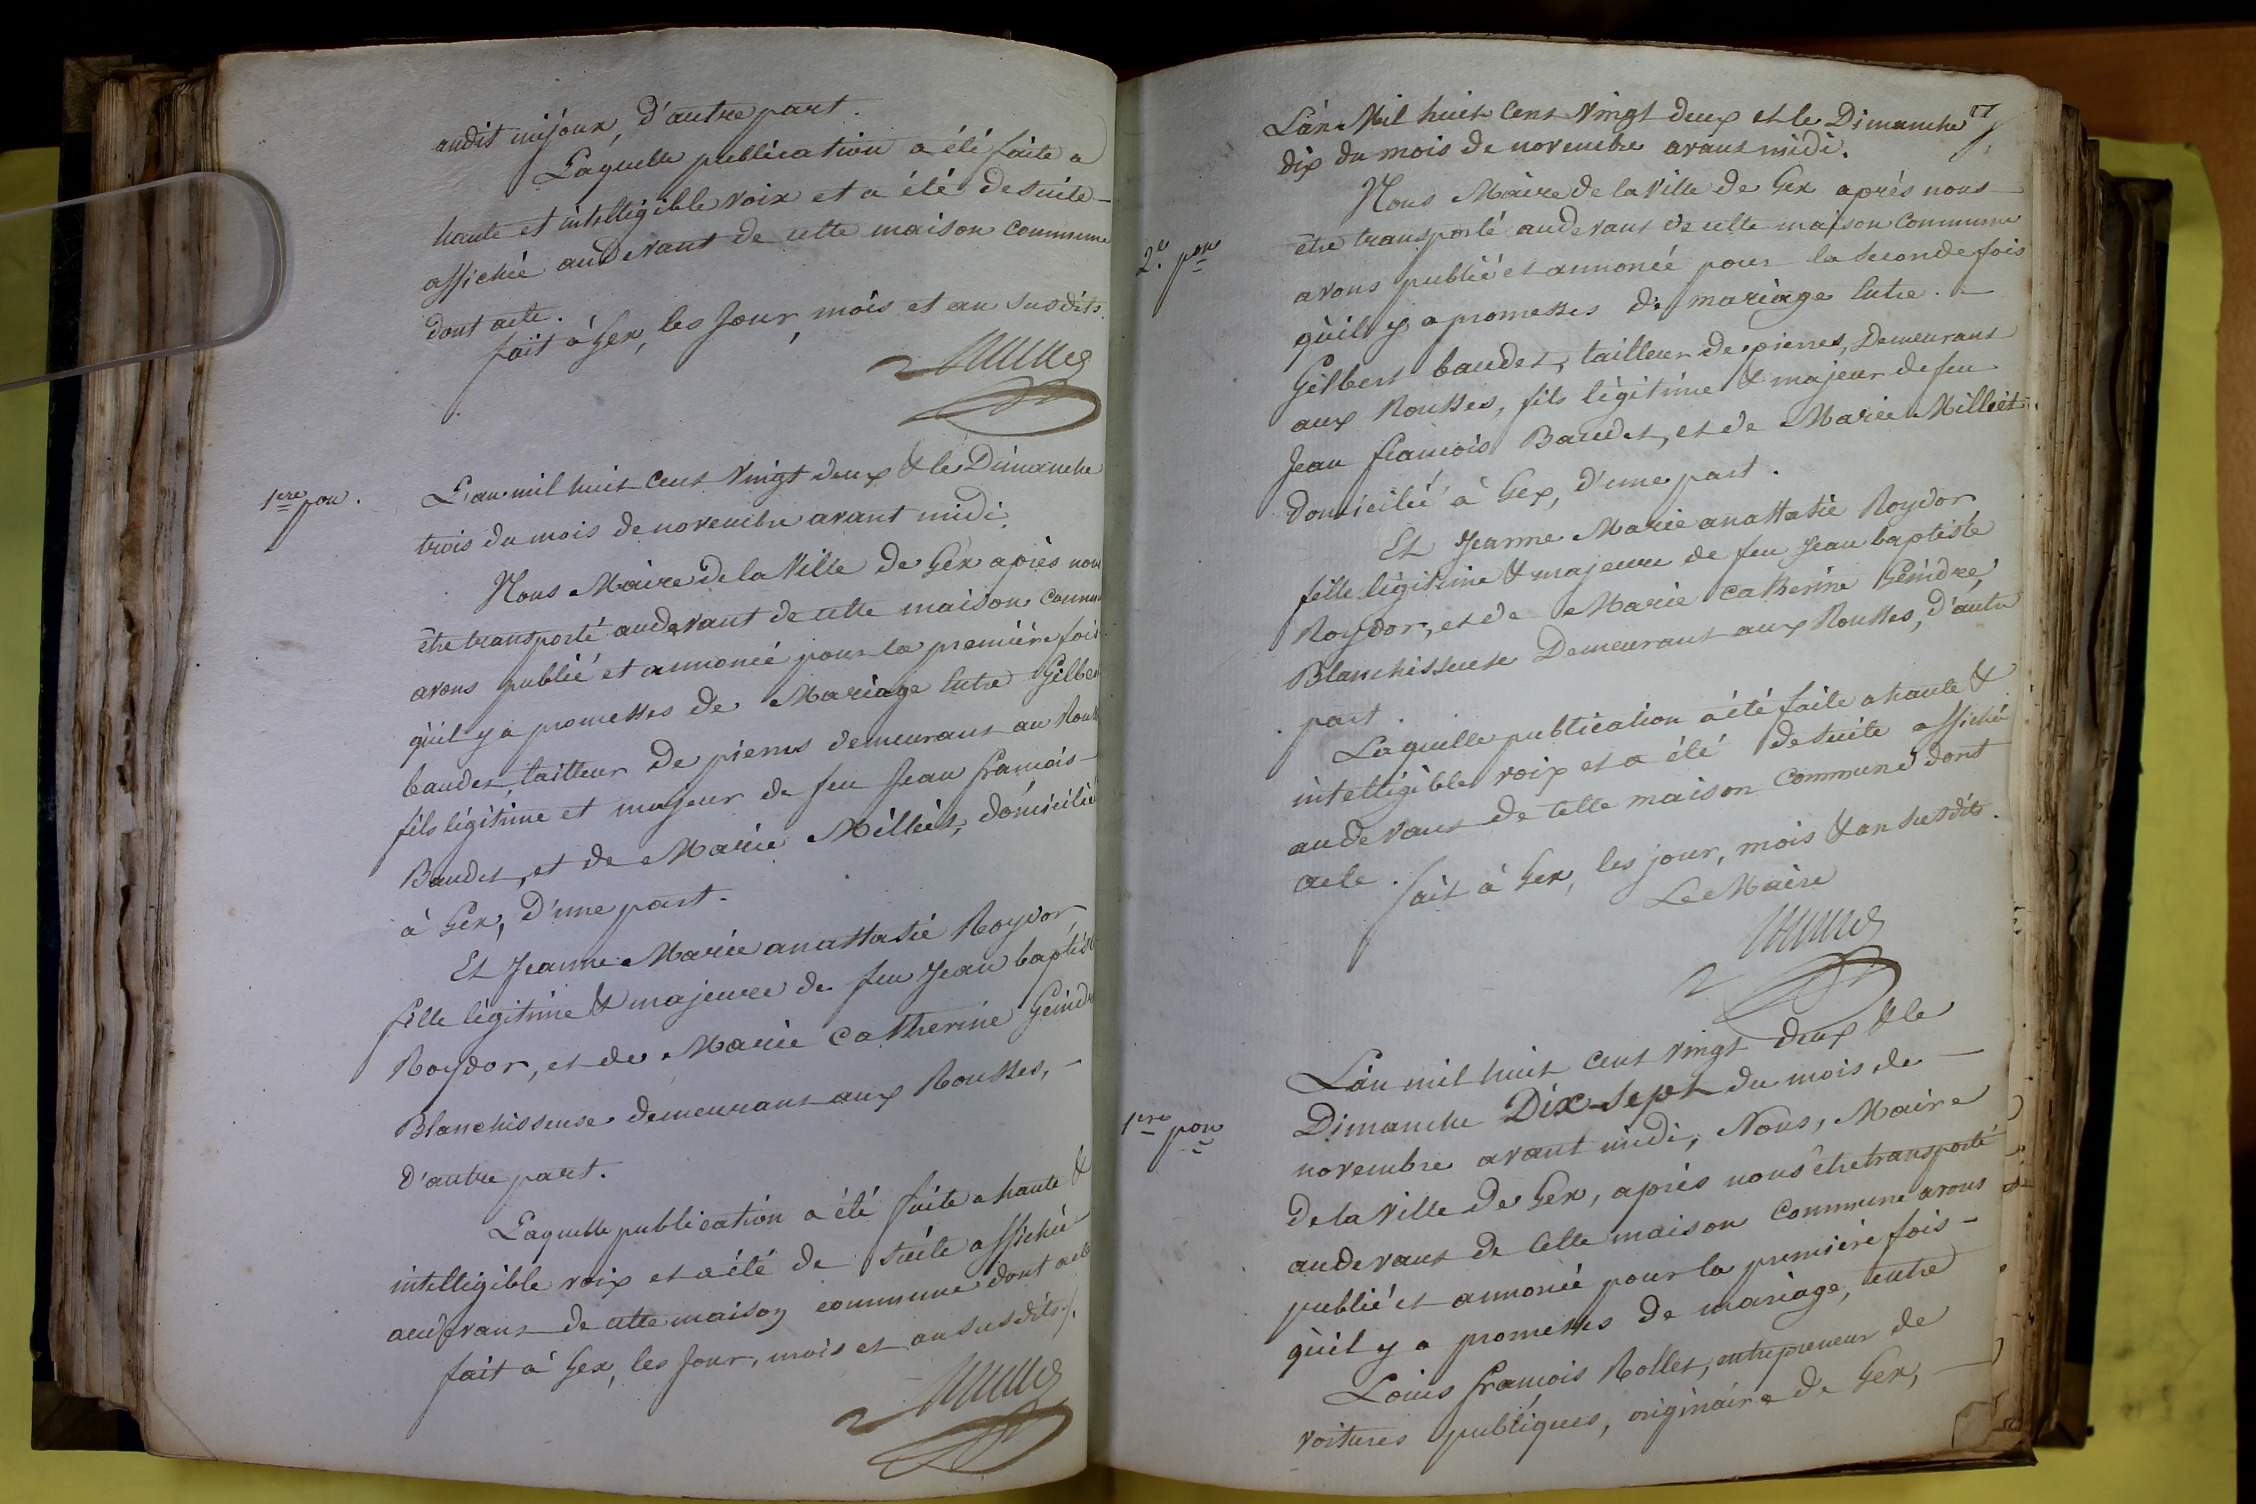 audit mijoux, d'autre part.
Laquelle publication a été faite a
haute et intelligible voix et a été de suite
affichée audevant de cette maison commune
dont acte.
fait à Gex, les Jour, mois et an susdits.
1ere pon.
L'an mil huit cent vingt deux & le Dimanche
trois du mois de novembre avant midi.
Nous Maire de la Ville de Gex après nous
être transporté audevant de cette maison commune
avons publié et annoncé pour la première fois
qu'il y a promesses de Mariage entre Gilbert
baudet, tailleur de pierres demeurant au Rousses
fils légitime et majeur de feu Jean françois
Baudet, et de Marie Milliet, domiciliée
à Gex, d'une part.
Et Jeanne Marie anastasie Roydor
fille légitime & majeure de feu Jean baptiste
Roydor, et de Marie Catherine Geindre
Blanchisseuse demeurant aux Rousses,
d'autre part.
Laquelle publication a été faite a haute &
intelligible voix et a été de suite affichée
audevant de cette maison commune dont acte
fait à Gex, les Jour, mois et an susdits.
7
L'an Mil huit Cent Vingt deux et le Dimanche
dix du mois de novembre avant midi.
2e pon
Nous Maire de la Ville de Gex après nous
être transporté audevant de cette maison commune
avons publié et annoncé pour la seconde fois
qu'il y a promesses de mariage entre
Gilbert baudet, tailleur de pierres, Demeurant
aux Rousses, fils légitime & majeur de feu
Jean françois Baudet, et de Marie Milliet
domiciliée à Gex, d'une part.
Et Jeanne Marie anastasie Roydor
fille légitime & majeure de feu Jean baptiste
Roydor, et de Marie Catherine Geindre,
Blanchisseuse Demeurant aux Rousses, d'autre
part.
Laquelle publication a été faite a haute &
intelligible voix et a été de suite affichée
audevant de cette maison commune dont
acte.
fait à Gex, les jour, mois & an susdits.
Le Maire
1ere pon
L'an mil huit cent vingt deux & le
Dimanche Dix-sept du mois de
novembre avant midi, Nous, Maire
de la Ville de Gex, après nous être transporté
audevant de cette maison commune avons
publié et annoncé pour la première fois
qu'il y a promesses de mariage, entre
Louis françois Rollet, entrepreneur de
voitures publiques, originaire de Gex,